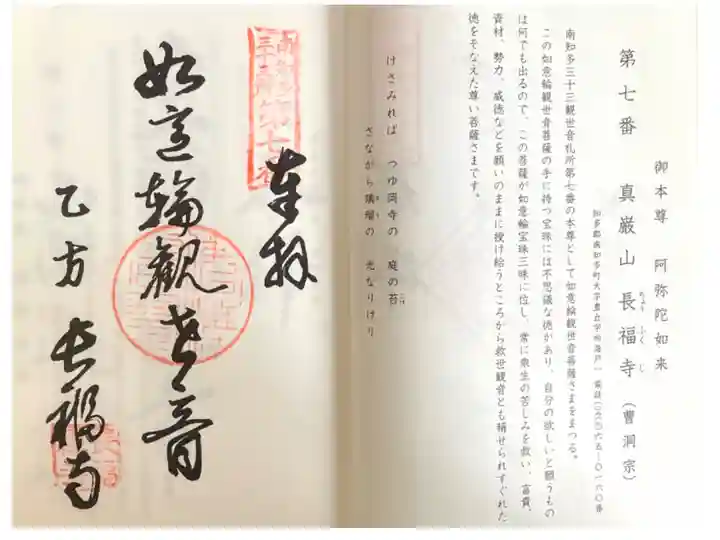 第七番 真厳山 長福寺(曹洞宗)
ちょう ふく じ
御本尊 阿弥陀如来
南知多三十三観世音札所第七番の本尊として如意輪観世音菩薩さまをまつる。
この如意輪観世音菩薩の手に持つ宝珠には不思議な徳があり、自分の欲しいと願うもの
は何でも出るので、この菩薩が如意輪宝珠三昧に位し、常に衆生の苦しみを救い、富貴、
資材、勢力、威徳などを願いのままに授け給うところから救世観音とも称せられすぐれた
徳をそなえた尊い菩薩さまです。
けさみれば つゆ岡寺の 庭の苔
こけ
さながら瑠璃の 光なりけり
奉拝
如意輪観世音
乙方 長福寺